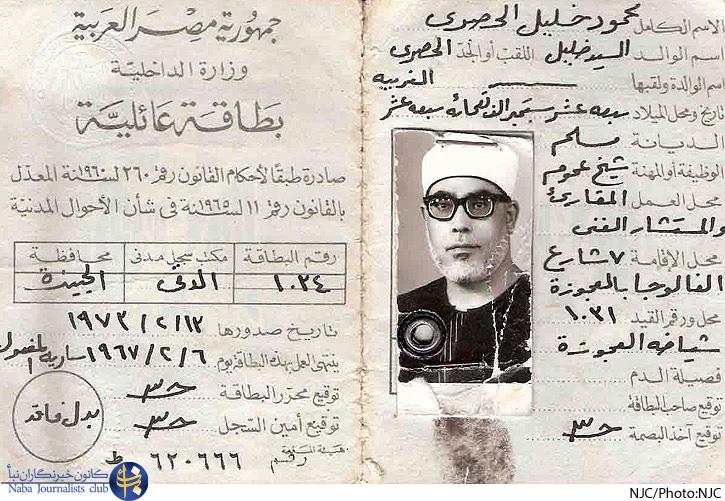 جمهورية مصر العربية
وزارة الداخلية
بطاقة عائلية
صادرة طبقا لأحكام القانون رقم ٢٦٠ لسنة ١٩٦٠ المعدل
بالقانون رقم ١١ لسنة ١٩٦٥ فى شأن الأحوال المدنية
رقم البطاقة مكتب سجل مدنى محافظة
١٠٣٤ الدقى الجيزة
تاريخ صدورها ١٩٧٣/٢/١٣
ينتهى العمل بهذه البطاقة يوم ١٩٦٧/٢/٦ سارية المفعول
توقيع محرر البطاقة
توقيع أمين السجل
بدل فاقد
رقم ٦٢٠٦٦٦ ط
الاسم الكامل محمود خليل الحصرى
اسم الوالد السيد خليل اللقب أو الجد الحصرى
اسم الوالدة ولقبها الغربيه
تاريخ ومحل الميلاد سبعه عشر سبتمبر الف تسعمائه سبعه عشر
الديانة مسلم
الوظيفة أو المهنة شيخ عموم
محل العمل المقارئ
والمستشار الفنى
محل الإقامة ٧ شارع
الفالوجا بالعجوزة
محل ورقم القيد ١٠٣١
شياخه العجوزة
فصيلة الدم
توقيع صاحب البطاقة
توقيع آخذ البصمة
كانون خبرنگاران نبأ
Naba Journalists club
NJC/Photo:NJC